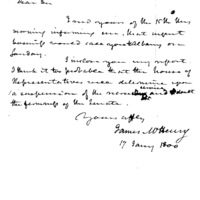 Dear Sir
I read yours of the 15th this
morning informing me, that urgent
business would case you Albany on
Sunday.
I inclose you my report
I think it too probable that the house of
Representatives will determine upon
a suspension of the
the of the Senate.
Yours
James McHenry
17 Jany 1800